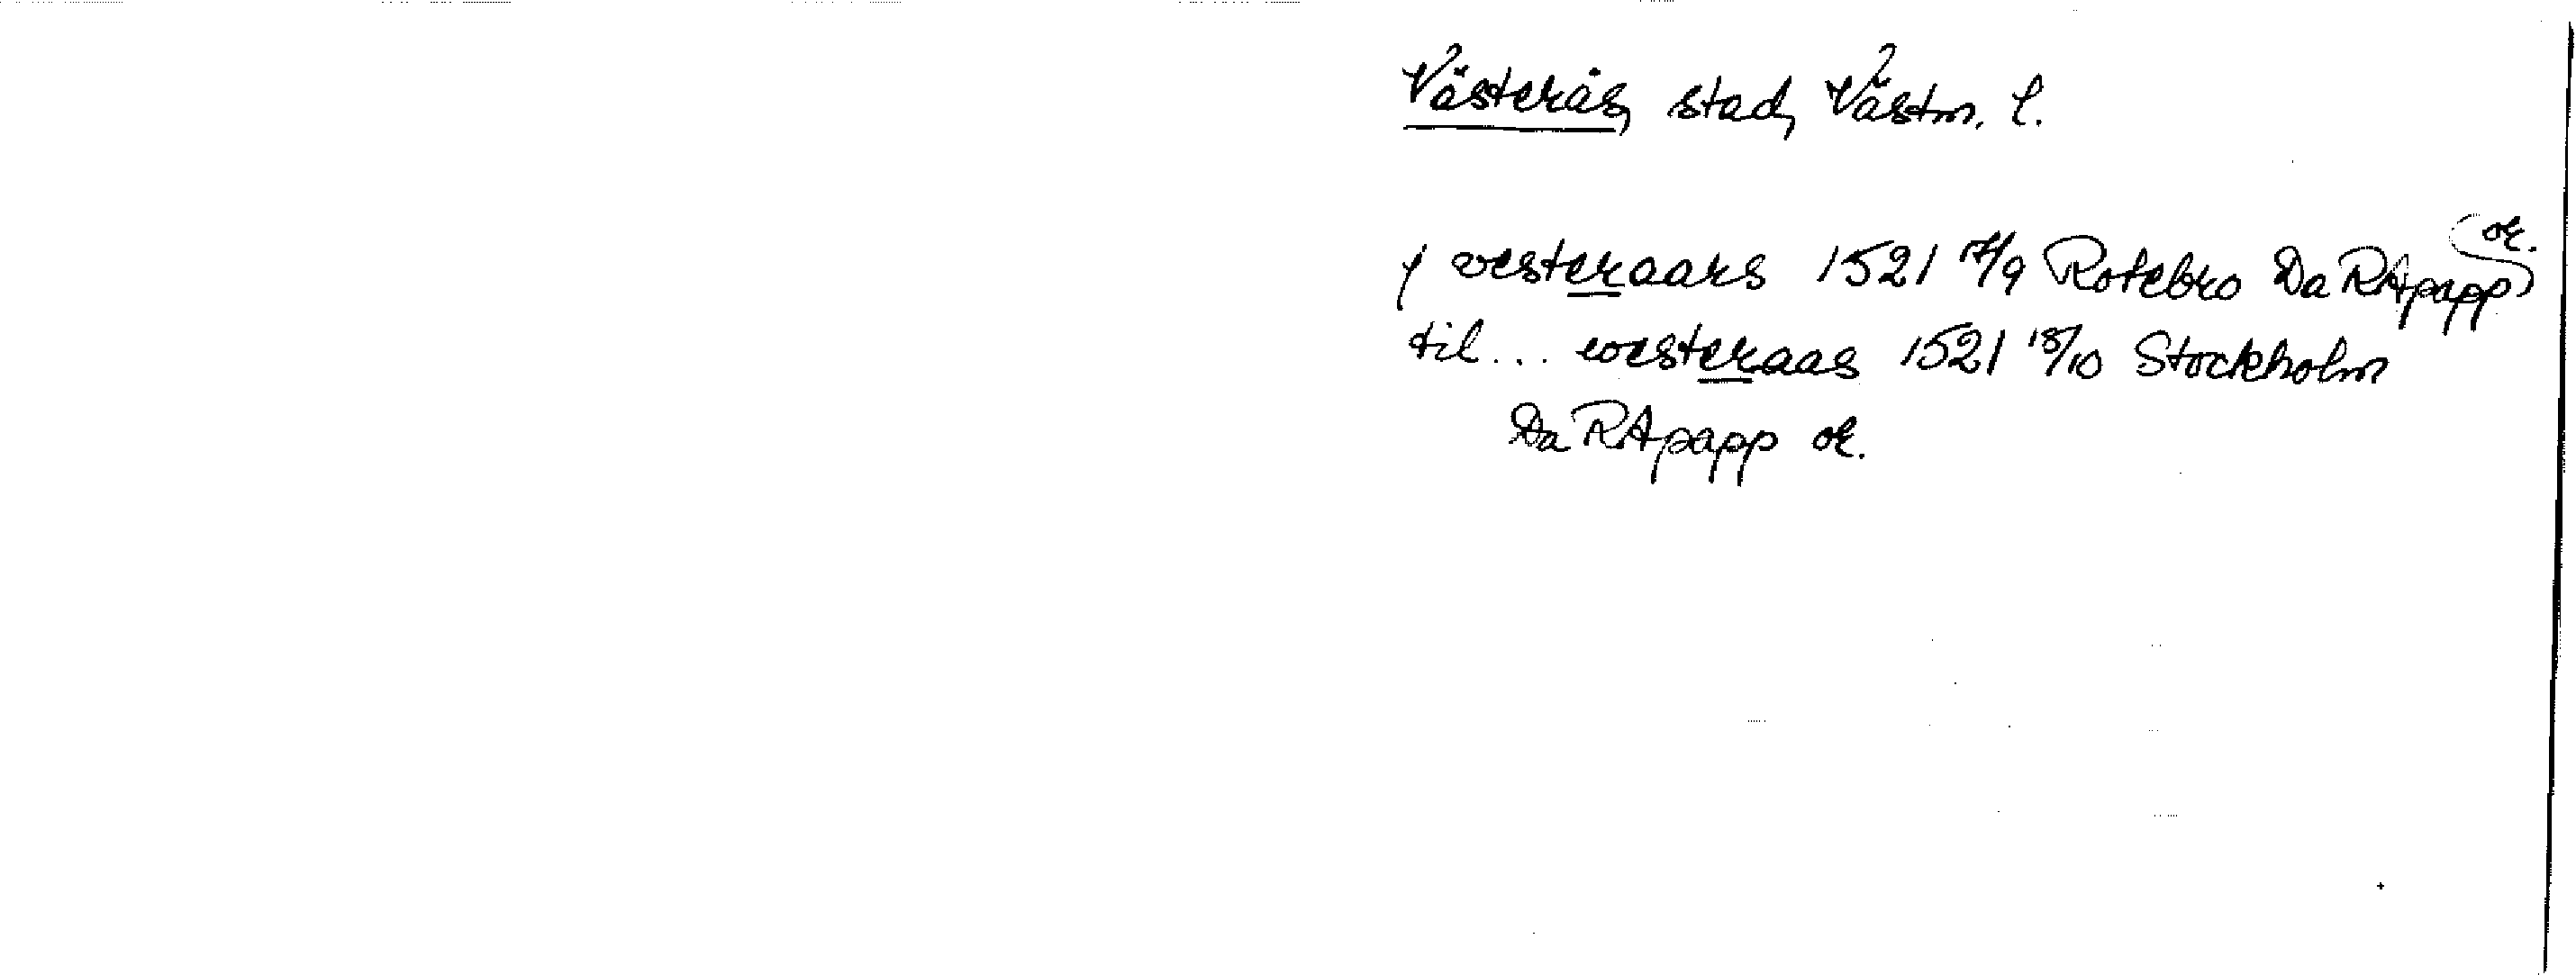 Västerås, stad, Västm. l.
y vesteraars 1521 7/9 Rotebro Da RApapp or.
til... westeraas 1521 18/10 Stockholm
Da RApapp or.